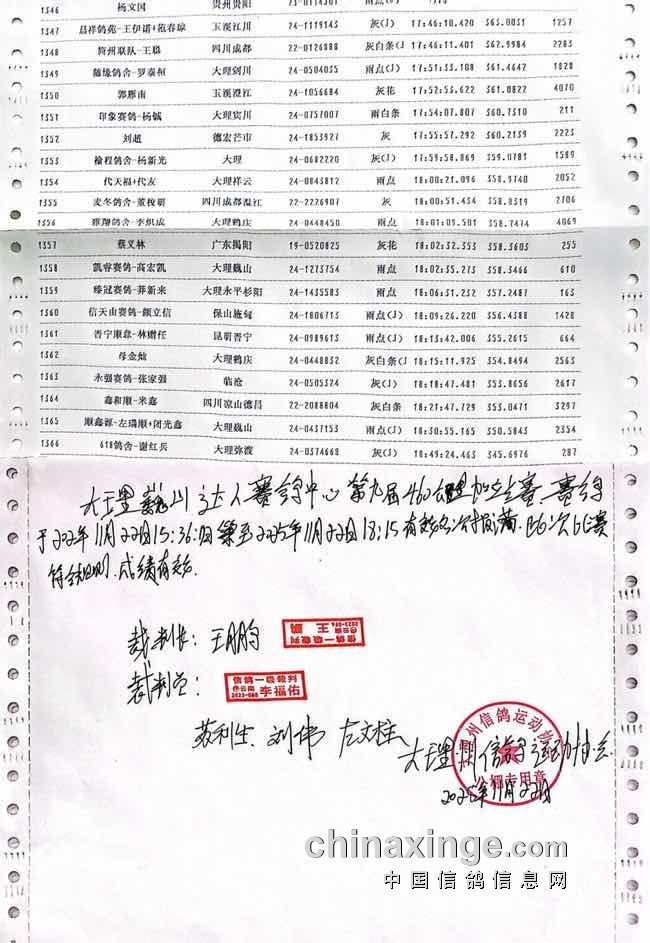 1346 杨文国 贵州贵阳
1347 昌祥鸽苑-王伊诺+范春琼 玉溪江川 24-1119143 灰(J) 17:46:10.420 363.0031 1257
1348 荷州联队-王聪 四川成都 22-0126888 灰白条(J 17:46:11.401 362.9984 2283
1349 随缘鸽舍-罗泰桓 大理剑川 24-0504035 雨点(J) 17:51:33.108 361.4642 1828
1350 郭雁南 玉溪澄江 24-1056684 灰花 17:52:53.622 361.0822 4070
1351 印象赛鸽-杨钺 大理宾川 24-0757007 雨白条 17:54:07.807 360.7310 211
1352 刘超 德宏芒市 24-1853927 灰 17:55:57.292 360.2139 2223
1353 榆程鸽舍-杨新光 大理 24-0682220 灰(J) 17:59:58.869 359.0781 1589
1354 代天福+代友 大理祥云 24-0843812 雨点 18:00:21.096 358.9740 2052
1355 麦冬鸽舍-董梭明 四川成都温江 22-2226907 灰 18:00:51.434 358.8319 2706
1356 雅翔鸽舍-李炽成 大理鹤庆 24-0448450 雨点 18:01:09.501 358.7474 4069
1357 蔡义林 广东揭阳 19-0520825 灰花 18:02:32.353 358.3603 255
1358 凯睿赛鸽-高宏凯 大理巍山 24-1273754 雨点 18:02:35.273 358.3466 610
1359 臻冠赛鸽-莽新来 大理永平杉阳 24-1435583 雨点 18:06:31.232 357.2487 163
1360 信天山赛鸽-颜立信 保山施甸 24-1806713 雨点(J) 18:09:26.220 356.4388 1428
1361 晋宁顺意-林赠任 昆明晋宁 24-0989613 雨点(J) 18:13:42.006 355.2615 664
1362 母金灿 大理鹤庆 24-0448832 灰白条(J 18:15:11.925 354.8494 2563
1363 永强赛鸽-张家强 临沧 24-0505324 灰(J) 18:18:47.481 353.8656 2617
1364 鑫和顺-米鑫 四川凉山德昌 22-2088804 灰白条 18:21:47.729 353.0471 3297
1365 顺鑫源-左瑞顺+闭光鑫 大理巍山 24-0437153 雨点(J) 18:30:55.165 350.5843 2354
1366 618鸽舍-谢红兵 大理弥渡 24-0374668 灰(J) 18:49:24.463 345.6976 287
大理巍山达人赛鸽中心第九届460公里加站赛、赛鸽
于2025年11月22日15:36归巢至2025年11月22日18:15有效名次报满.此次比赛
符合规则.成绩有效.
裁判长: 王鹏
信鸽一级裁判
王鹏
裁判员:
信鸽一级裁判
李福佑
苏利生、刘伟 左文柱
大理州信鸽运动协会
公棚专用章
大理州信鸽运动协会
2025年11月22日
chinaxinge.com
中国信鸽信息网